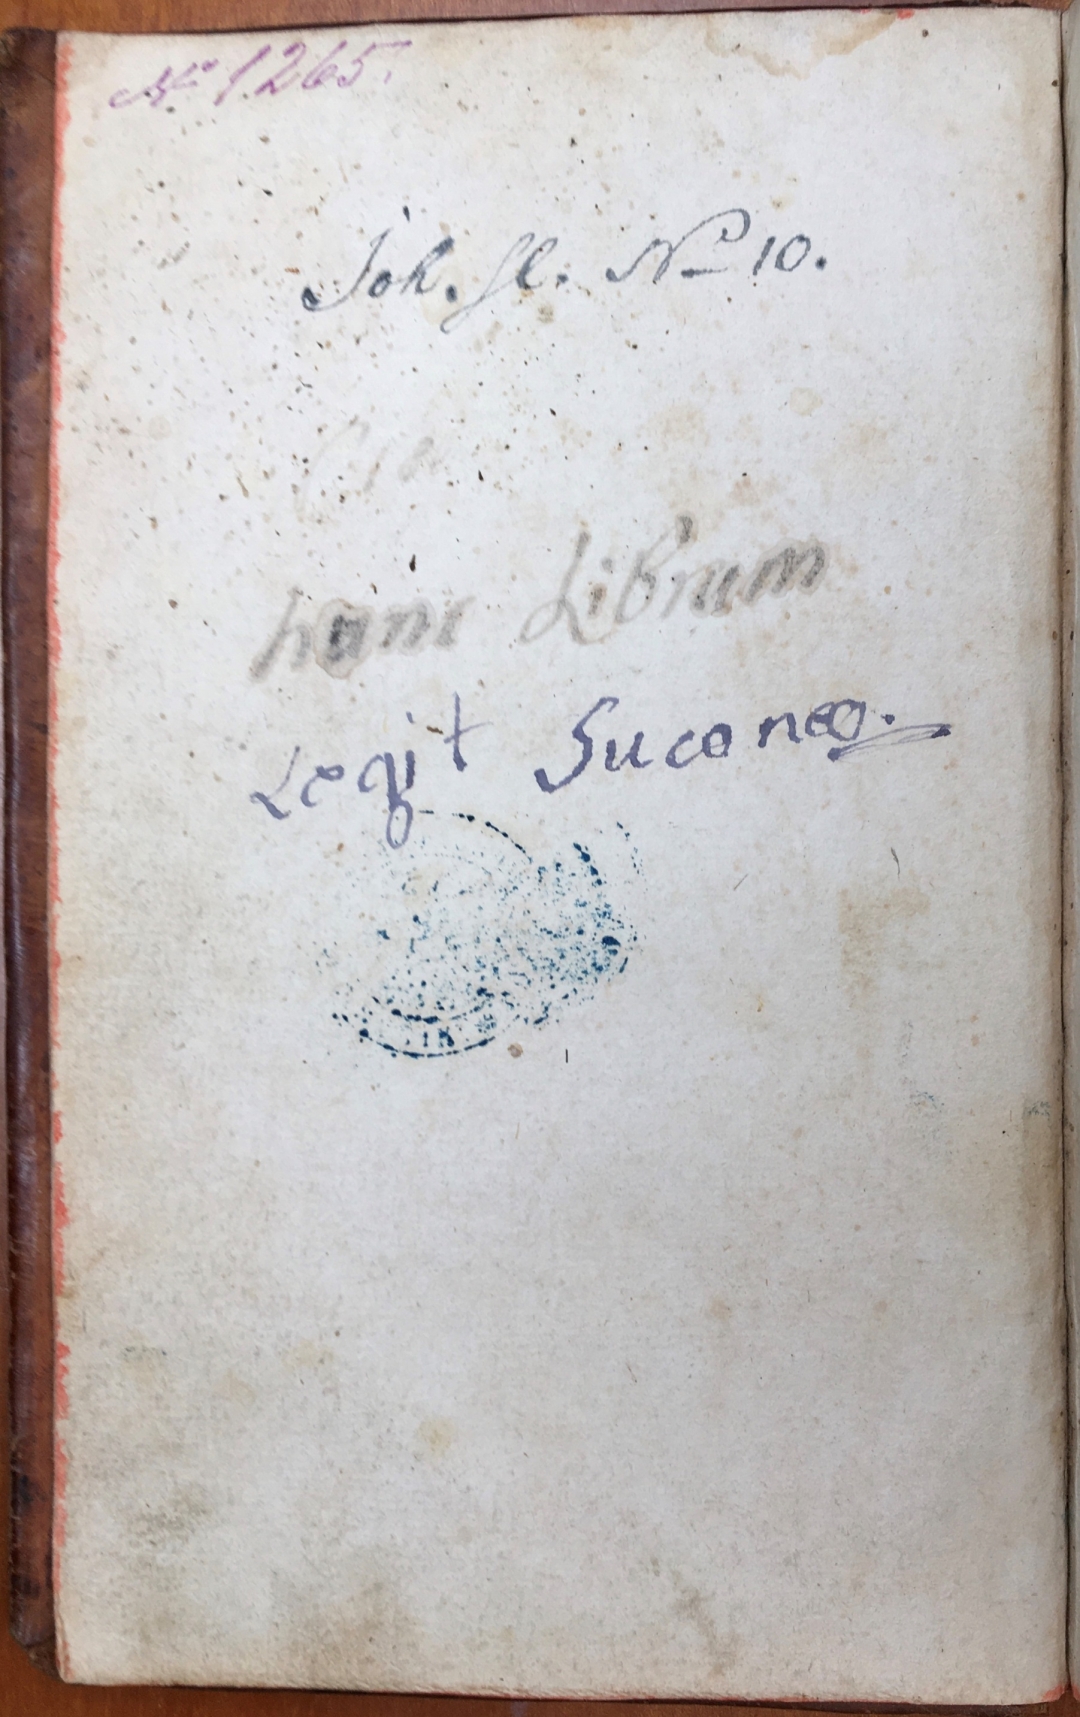 No 1265.
Joh. Gl. No 10.
hanc Librum
Legit Suconeo.